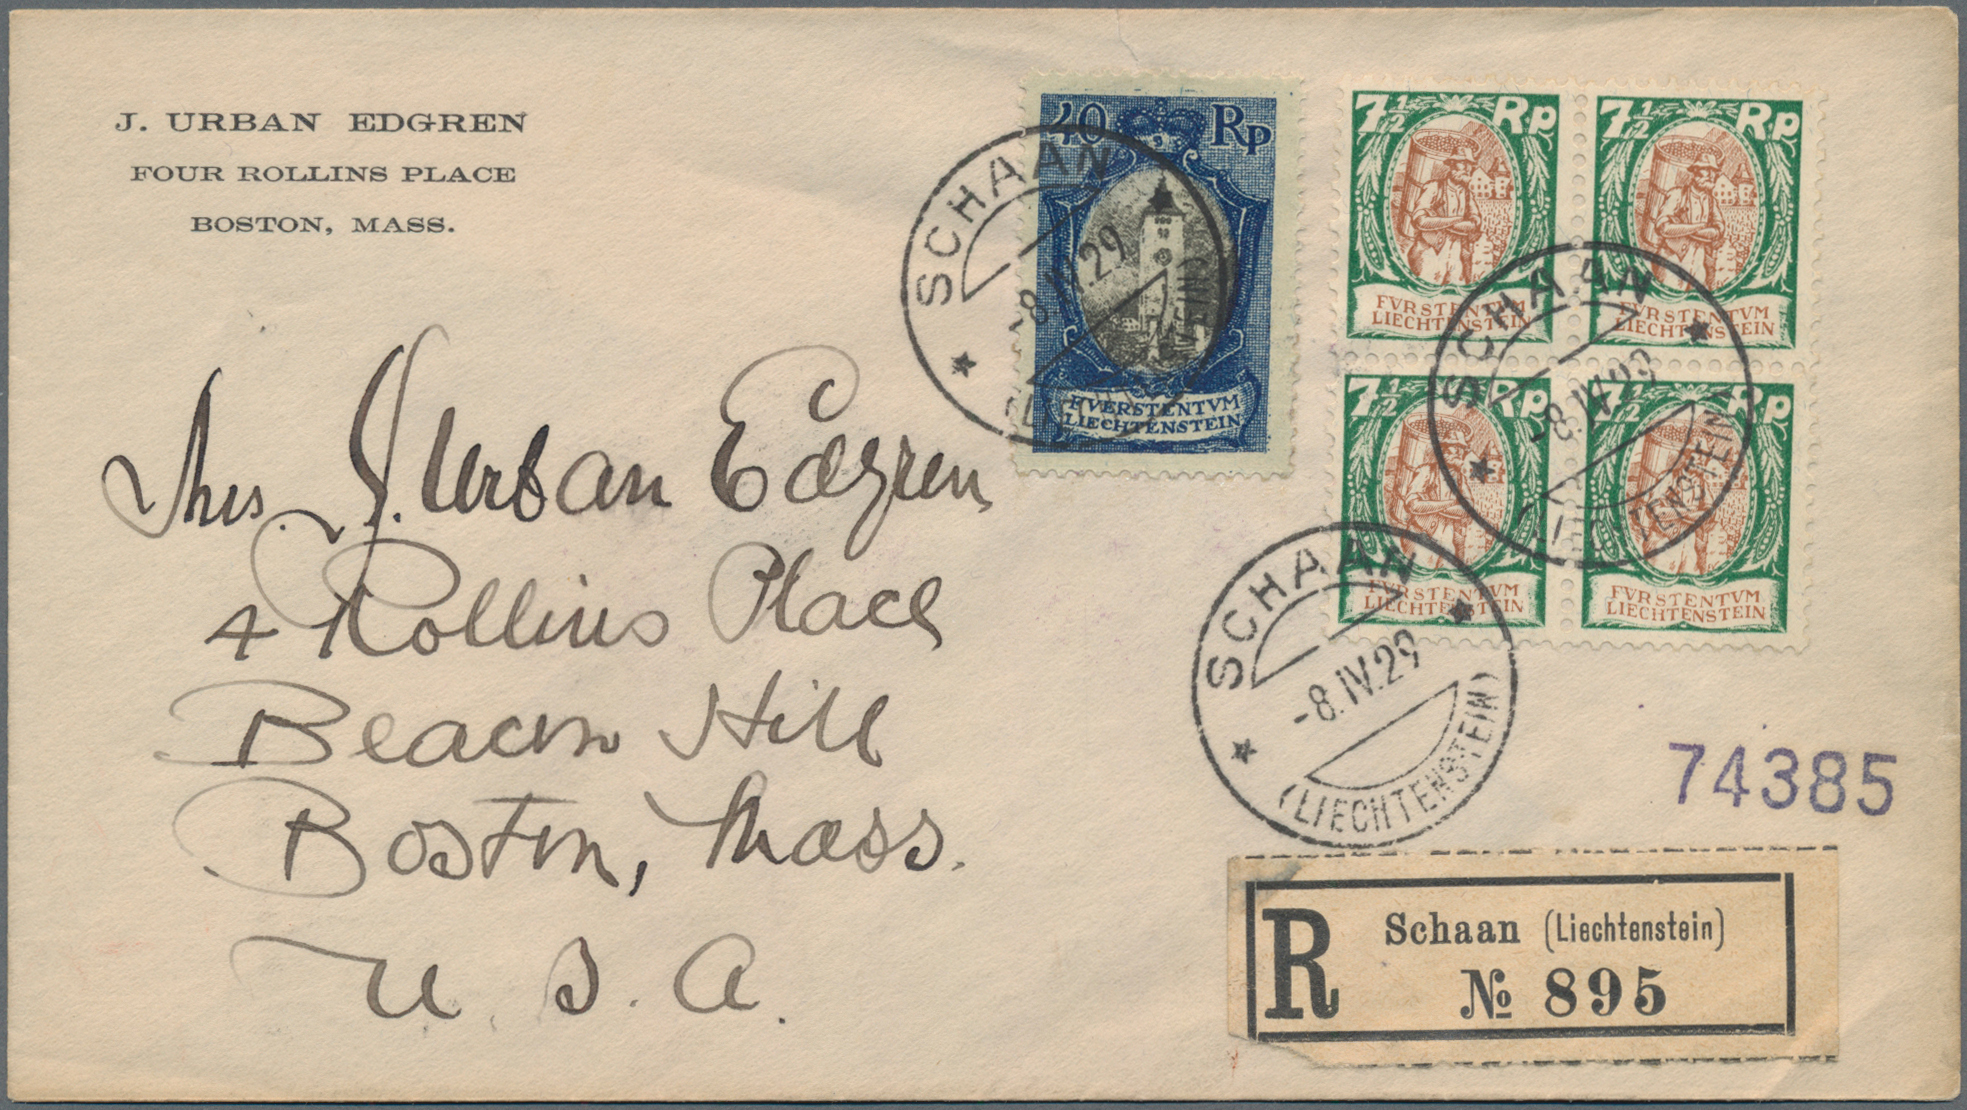 J. URBAN EDGREN
FOUR ROLLINS PLACE
BOSTON, MASS.
40 Rp
FVERSTENTVM
LIECHTENSTEIN
7½ Rp
FVRSTENTVM
LIECHTENSTEIN
7½ Rp
FVRSTENTVM
LIECHTENSTEIN
7½ Rp
FVRSTENTVM
LIECHTENSTEIN
7½ Rp
FVRSTENTVM
LIECHTENSTEIN
SCHAAN
-8.IV.29
(LIECHTENSTEIN)
SCHAAN
-8.IV.29
(LIECHTENSTEIN)
SCHAAN
-8.IV.29
(LIECHTENSTEIN)
Mrs. J. Urban Edgren
4 Rollins Place
Beacon Hill
Boston, Mass.
U. S. A.
74385
R Schaan (Liechtenstein)
№ 895